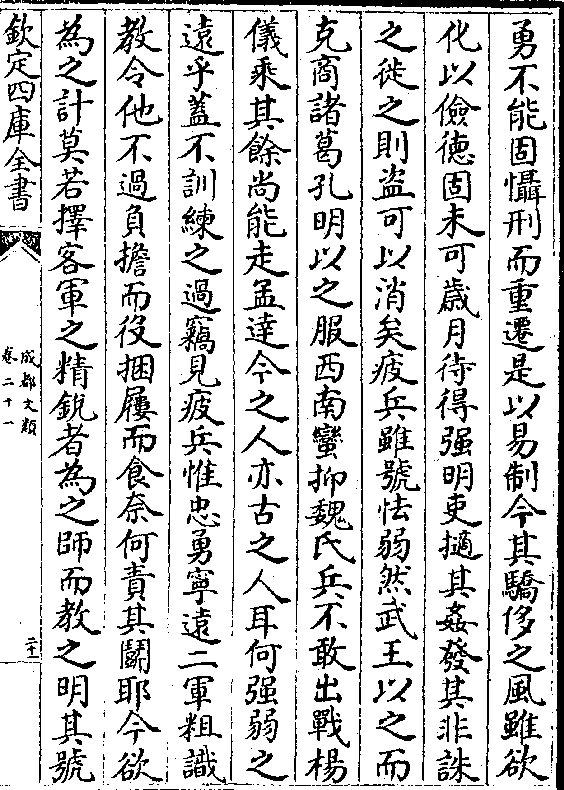 勇不能固懾刑而重遷是以易制今其驕侈之風雖欲
化以儉德固未可歲月待得强明吏擿其姦發其非誅
之徙之則盗可以消矣疲兵雖號怯弱然武王以之而
克商諸葛孔明以之服西南蠻抑魏氏兵不敢出戰楊
儀乘其餘尚能走孟達今之人亦古之人耳何强弱之
遠乎蓋不訓練之過竊見疲兵惟忠勇寧遠二軍粗識
教令他不過負擔而役捆屨而食奈何責其鬭耶今欲
為之計莫若擇客軍之精銳者為之師而教之明其號
欽定四庫全書
成都文類
卷二十一
二十